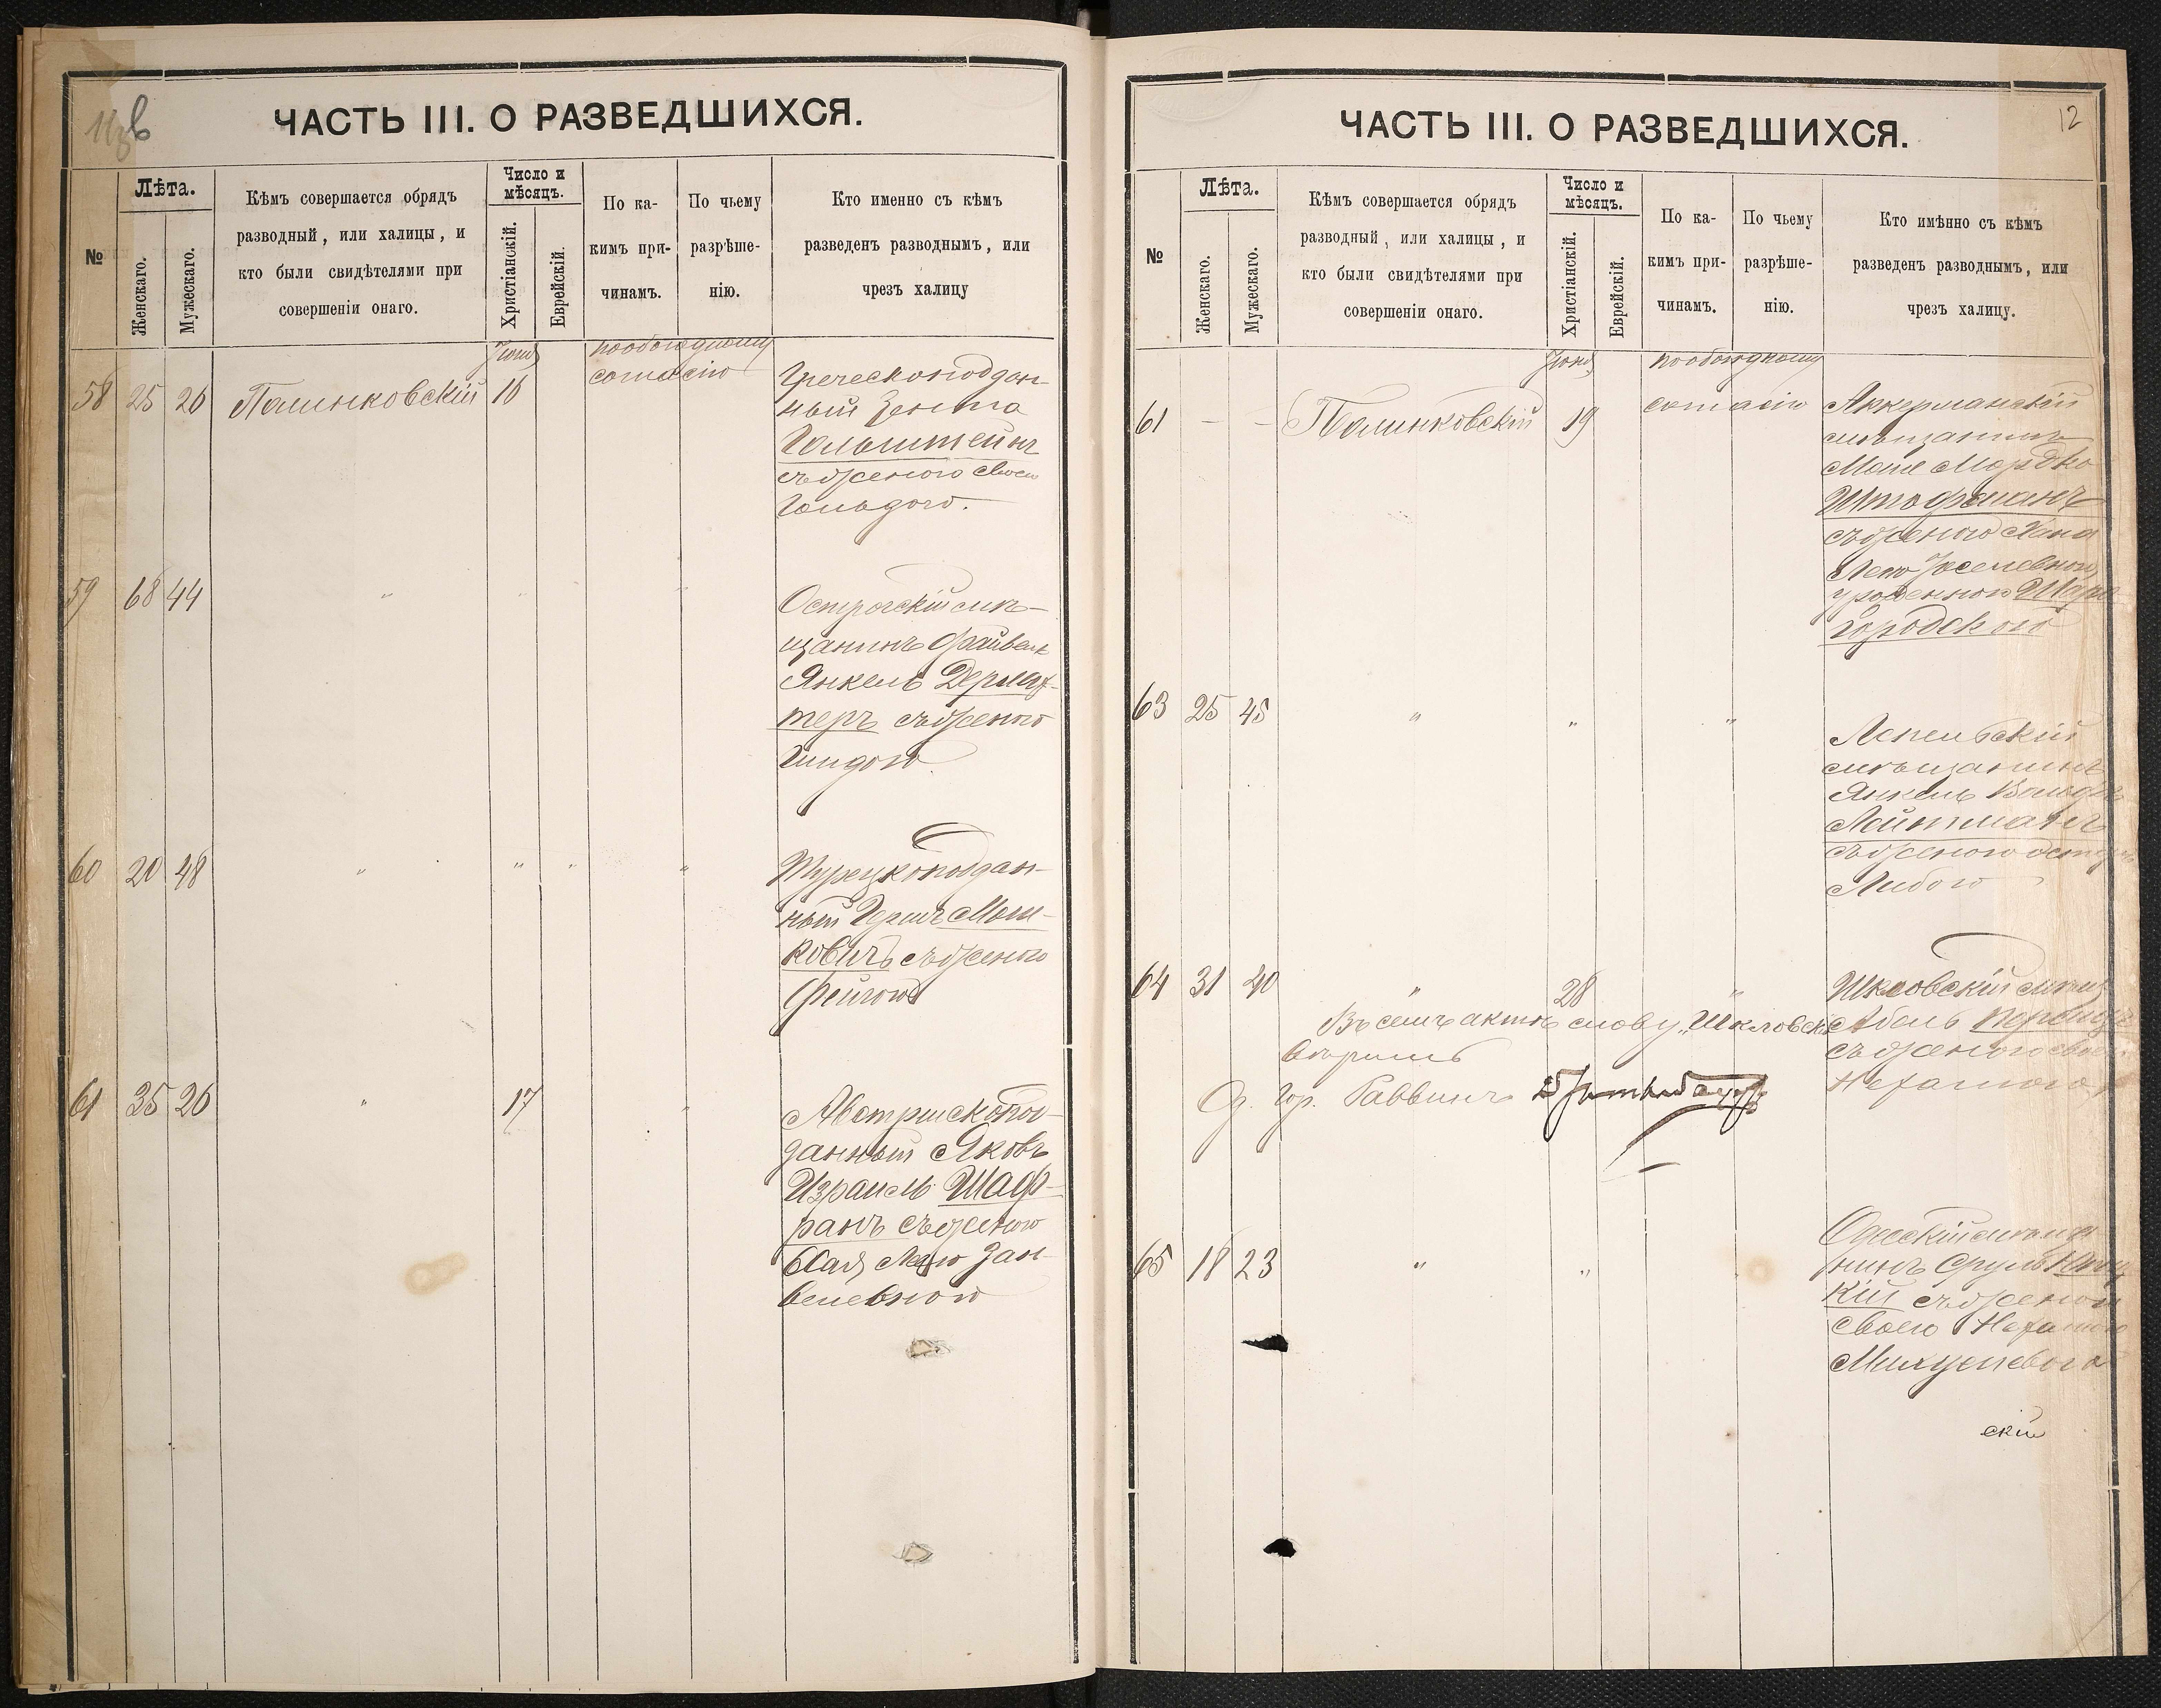 ЧАСТЬ III. О РАЗВЕДШИХСЯ.
№
Лѣта.
Женскаго.
Мужескаго.
Кѣмъ совершается обрядъ
разводный, или халицы, и
кто были свидѣтелями при
совершеніи онаго.
Число и
мѣсяцъ.
Христіанскій.
Еврейскій.
По ка-
кимъ при-
чинамъ.
По чьему
разрѣше-
нію.
Кто именно съ кѣмъ
разведенъ разводнымъ, или
чрезъ халицу
58 25 26 Палинковскій
Іюня
16
по обоюдному
согласію
Греческоподдан-
ный
Гольштейнъ
съ женою своею
Гольдою.
59 68 44 " " "
Острогскій мѣ-
щанинъ Файвель
Янкель Дермах-
теръ съ женою
Гиндою
60 20 48 " " " "
Турецкоподдан-
ный Гершъ Мош-
ковичъ съ женою
Фейгою
61 35 26 " 17 "
Австрійскопод-
данный Яковъ
Израиль Шаф-
ранъ съ женою
Хая Леею Зан-
велевною
12
ЧАСТЬ III. О РАЗВЕДШИХСЯ.
№
Лѣта.
Женскаго.
Мужескаго.
Кѣмъ совершается обрядъ
разводный, или халицы, и
кто были свидѣтелями при
совершеніи онаго.
Число и
мѣсяцъ.
Христіанскій.
Еврейскій.
По ка-
кимъ при-
чинамъ.
По чьему
разрѣше-
нію.
Кто имѣнно съ кѣмъ
разведенъ разводнымъ, или
чрезъ халицу.
61 - - Палинковскій
Іюня
19
по обоюдному
согласію
Аккерманскій
мѣщанинъ
Мордко
Штофманъ
съ женою Хана
Леею Іоселевною
урожденною Шаро
городскою
63 25 45 " " "
Лепельскій
мѣщанинъ
Янкель Вольфъ
Лейтманъ
съ женою
Либою
64 31 40 " 28 "
Шкловскій мѣщ
Абель Перельц
съ женою своею
Нехамою
Въ семъ актѣ слову "Шкловскій"
вѣрить
Гор. Раввинъ
65 18 23 " "
Одесскій мѣща
нинъ Сруль
кій съ женою
своею Нехамою
скій